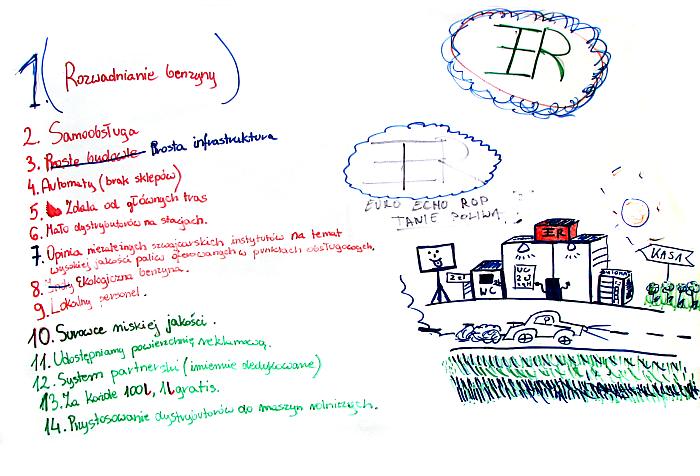 1. (Rozwadnianie benzyny)
2. Samoobsługa
3. Proste budowle Prosta infrastruktura
4. Automaty (brak sklepów)
5. Zdala od głównych tras
6. Mało dystrybutorów na stacjach.
7. Opinia niezależnych szwajcarskich instytutów na temat
wysokiej jakości paliw oferowanych w punktach obsługowych,
8. Ekologiczna benzyna.
9. Lokalny personel.
10. Surowce niskiej jakości.
11. Udostępniamy powierzchnię reklamową.
12. System partnerski (imiennie dedykowane)
13. Za każde 100L, 1L gratis.
14. Przystosowanie dystrybutorów do maszyn rolniczych.
ER
ER
EURO ECHO ROP
TANIE POLIWA
ER
KASA
WC